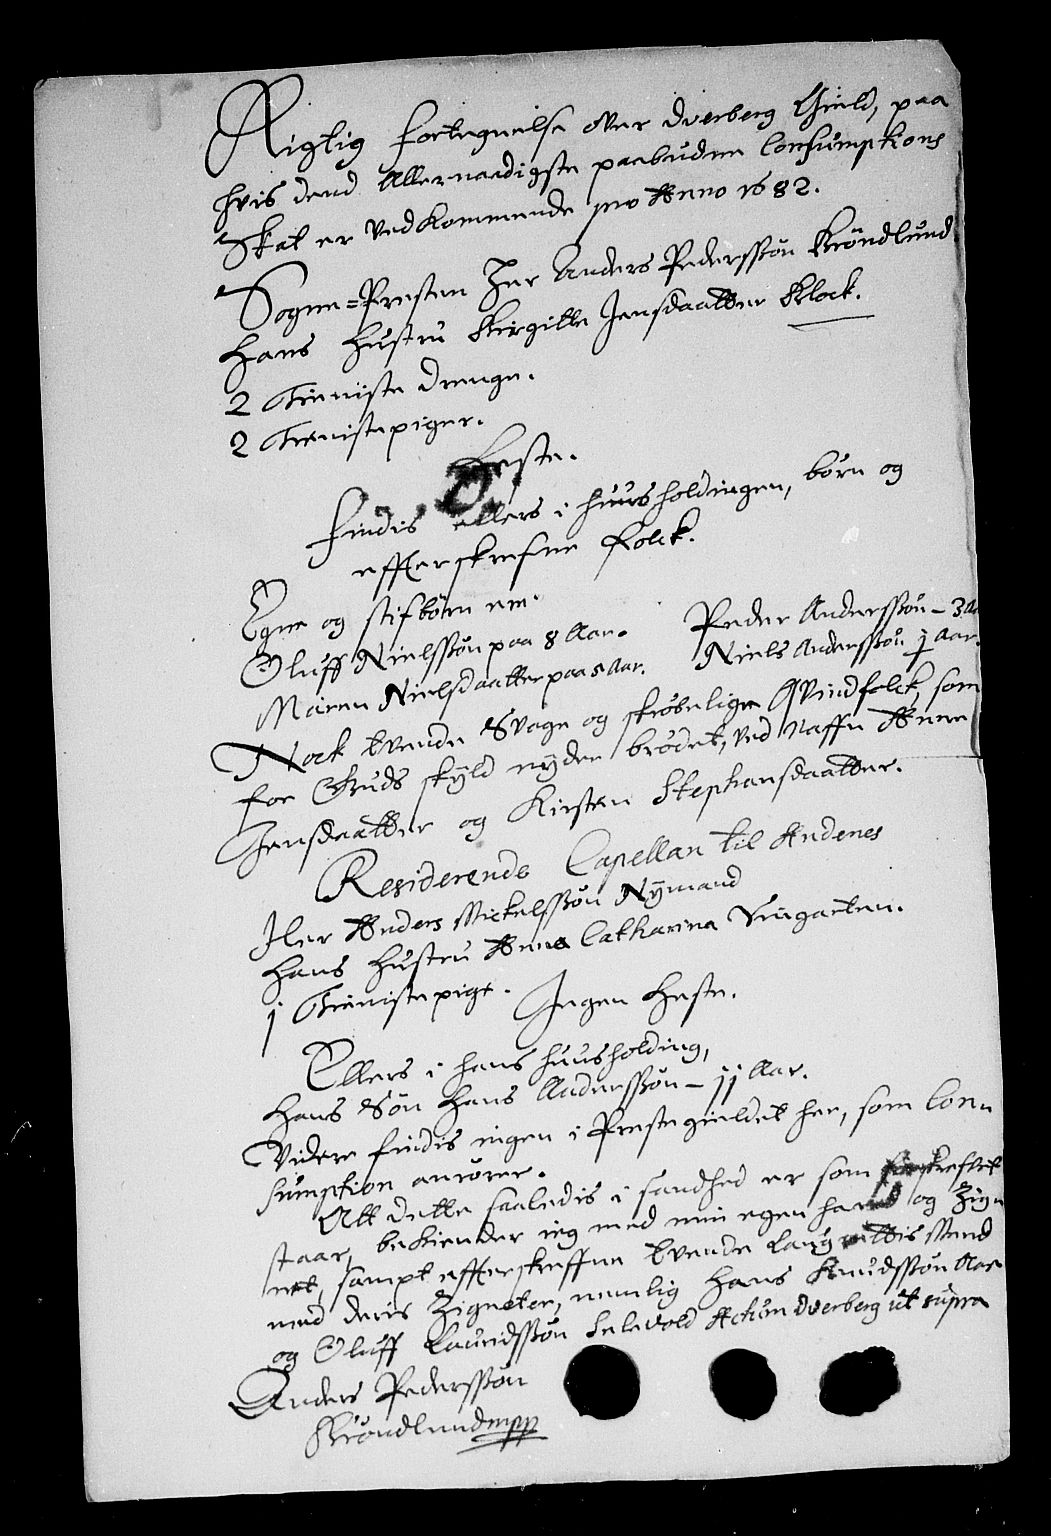 Rigtig fortegnelse over Dverberg Gield, paa
hvis dend Allernaadigste paabudne Consumptions
Skat er vedkommende pro Anno 1682.
Sogne=Presten Her Anders Pederssøn Krøndlund
Hans Hustru Birgitte Jensdaatter Klock.
2 Tieniste drenge.
2 Tienistepiger.
Heste. 0.
Findis ellers i huusholdingen, børn og
effterskrefne folck.
Egne og stifbørn ere.
Oluff Nielssøn paa 8 Aar. Peder Anderssøn – 3 Aar
Maren Nielsdaatter paa 5 Aar. Niels Anderssøn j Aar.
Nock tvende Svage og skrøbelige Qvindfolck, som
for Guds skyld nyder brødet, ved Naffn Anne
Jensdaatter og Kirsten Stephansdaatter.
Residerende Capellan til Andenes
Her Anders Mickelssøn Nÿmand
Hans Hustru Anna Catharina Vingarten.
j Tienistepige. Ingen Heste.
Ellers i hans huusholding,
Hans Søn Hans Anderssøn – jj Aar.
Videre findis ingen i Prestegieldet her, som Con-
sumption anrører.
Att dette saaledis i sandhed er som forskrefvet
staar, bekiender ieg med min egen haand og Zigne
net, sampt effterskreffne tvende Laugrettis Mend
med deris Zigneter, nemlig Hans Knudssøn Aase
og Oluff Lauridssøn Selevold Actum Dverberg ut supra
Anders Pederssøn
Krøndlund mpp